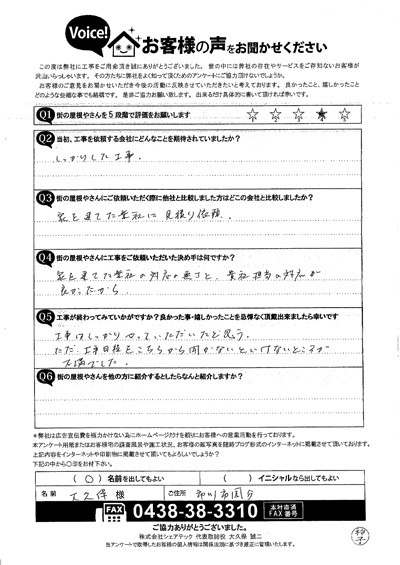 Voice!
お客様の声をお聞かせください
この度は弊社に工事をご用命頂き誠にありがとうございました。世の中には弊社の存在やサービスをご存知ないお客様が
沢山いらっしゃいます。その方たちに弊社をよく知って頂くためのアンケートにご協力頂けないでしょうか。
お客様のご意見をお聞かせいただき今後の活動に反映させていただきたいと考えております。良かったこと、嬉しかったこと
どのような些細な事でも結構です。是非ご協力お願い致します。出来るだけ具体的に書いて頂ければ幸いです。
Q1 街の屋根やさんを5段階で評価をお願いします ☆ ☆ ☆ ★ ☆
Q2 当初、工事を依頼する会社にどんなことを期待されていましたか?
しっかりした工事。
Q3 街の屋根やさんにご依頼いただく際に他社と比較しました方はどこの会社と比較しましたか?
家を建てた業社に見積り依頼。
Q4 街の屋根やさんに工事をご依頼いただいた決め手は何ですか?
家を建てた業社の対応の悪さと、貴社担当の対応が
良かったから。
Q5 工事が終わってみていかがですか?良かった事・嬉しかったことを忌憚なく頂戴出来ましたら幸いです
工事はしっかりやっていただいたと思う。
ただ、工事日程をこちらから聞かないといけないところが
不満でした。
Q6 街の屋根やさんを他の方に紹介するとしたらなんと紹介しますか?
※弊社は広告宣伝費を極力かけない為にホームページだけを頼りにお客様への営業活動を行っております。
本アンケート用紙またはお客様宅の調査風景や施工状況、お客様の鑑写真を随時ブログ形式のインターネットに掲載させて頂いております。
上記内容をインターネットや印刷物に掲載させて頂いてもよろしいでしょうか?
下記の中から○印をお付下さい。
( ○ ) 名前を出してもよい ( ) イニシャルなら出してもよい
名前 大久保 様 ご住所 市川市国分
FAX 0438-38-3310 本社直通 FAX番号
ご協力ありがとうございました。
株式会社シェアテック 代表取締役 大久保 誠二
当アンケートで取得したお客様の個人情報は関係法規に基づき厳正に管理いたします。